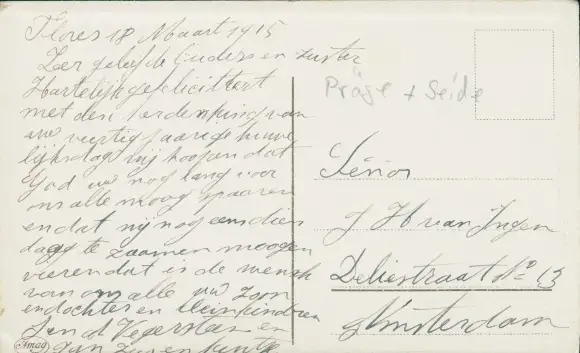 Flores 18 Maart 1915
Zeer geliefde Ouders en zuster
Hartelijk gefeliciteert
met den herdenking van
uw veertig jaarige huwe
lijksdag wij hoopen dat
God uw nog lang voor
ons alle moog spaaren
en dat wij nog eens dien
dagg te zaamen moogen
vieren dat is de wensch
van ons alle uw zoon
en dochter en kleinkinderen
en
Präge + Seide
Sénior
J H van Ingen
Deliestraat No 13
Amsterdam